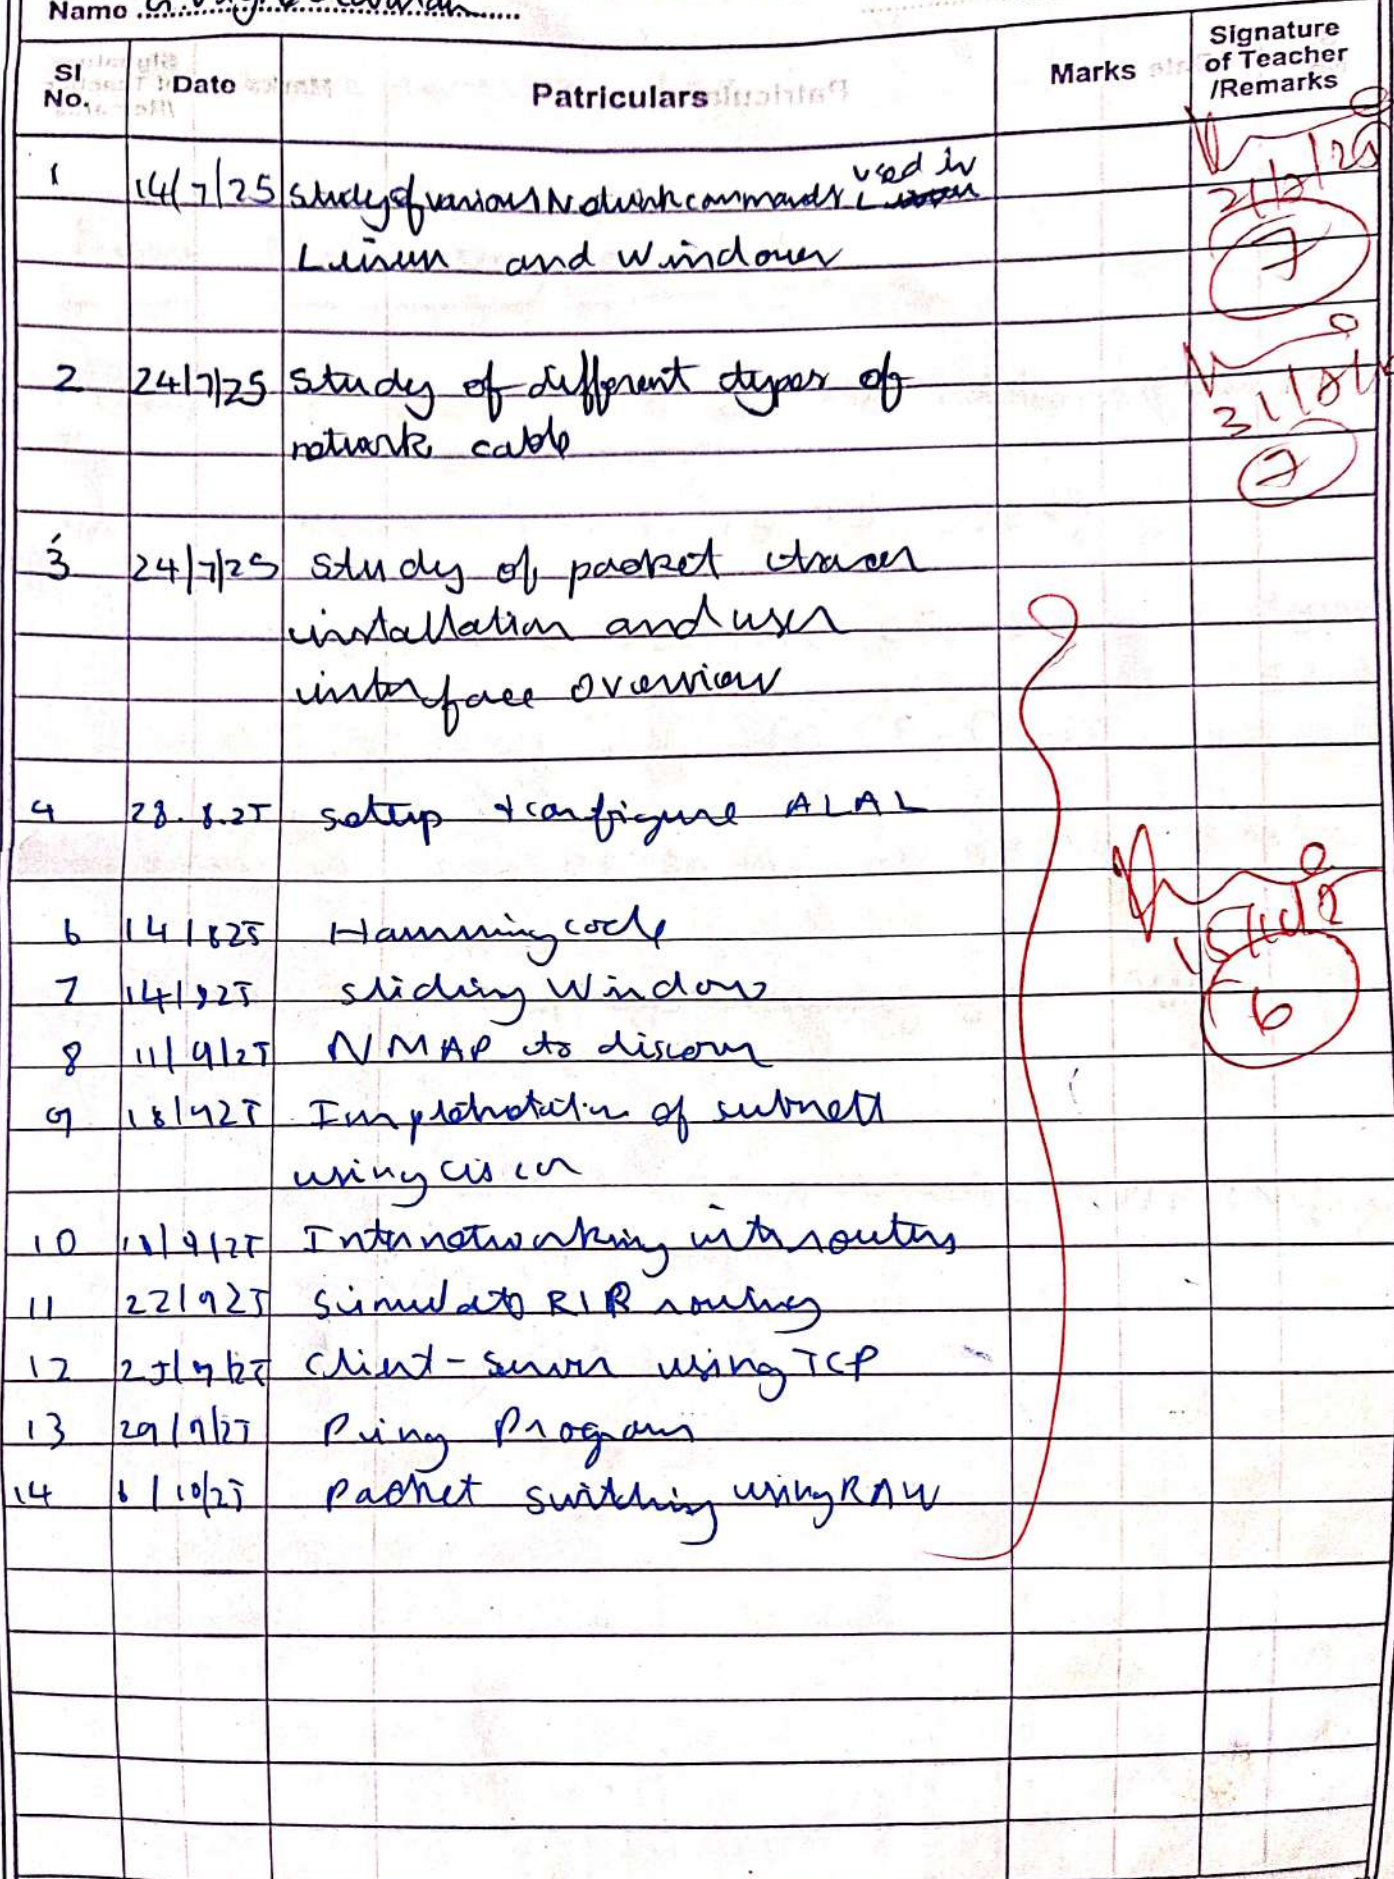 Name
Sl No. Date Patriculars Marks Signature of Teacher /Remarks
1 14/7/25 Study of various Network commands used in
Linux and Windows
7
2 24/7/25 Study of different types of
network cable
7
3 24/7/25 Study of packet tracer
installation and user
interface overview
4 28.8.25 setup + configure ALAL
6 14/825 Hamming code
7 14/825 sliding Window
8 11/9/25 NMAP to discover
9 18/925 of subnett
using cisco
10 18/9/25 Internetworking with routers
11 22/925 simulate RIP routing
12 25/9/25 client-server using TCP
13 29/9/25 Ping Program
14 6/10/25 Packet switching using RAW
6